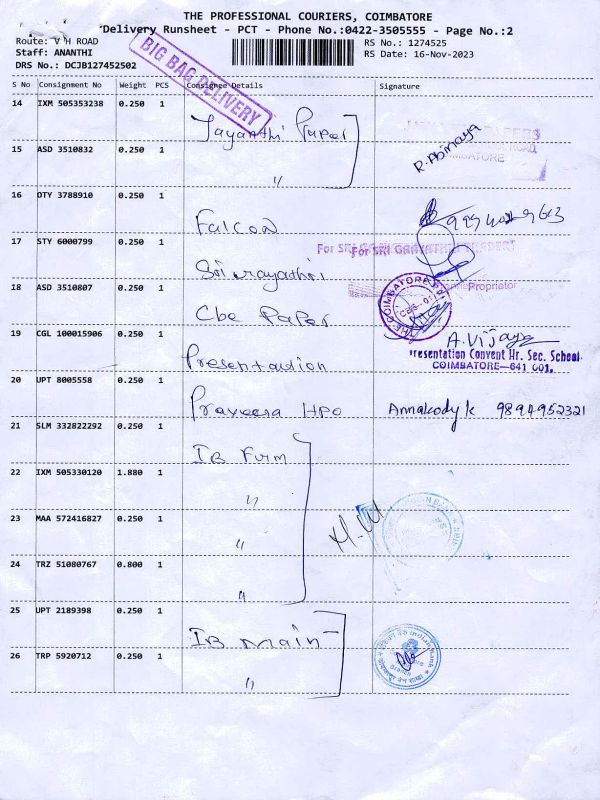 THE PROFESSIONAL COURIERS, COIMBATORE
Delivery Runsheet - PCT - Phone No.:0422-3505555 - Page No.:2
Route: V H ROAD
RS No.: 1274525
Staff: ANANTHI
RS Date: 16-Nov-2023
DRS No.: DCJB127452502
BIG BAG DELIVERY
S No Consignment No Weight PCS Consignee Details Signature
14 IXM 505353238 0.250 1
Jayanthi Paper
R. Abinaya
COIMBATORE
15 ASD 3510832 0.250 1
"
16 OTY 3788910 0.250 1
Falcon
17 STY 6000799 0.250 1
For SRI
Proprietor
18 ASD 3510807 0.250 1
Cbe Paper
19 CGL 100015906 0.250 1
Presentation
A. Vijaya
Presentation Convent Hr. Sec. School
COIMBATORE—641 001.
20 UPT 8005558 0.250 1
Praveena HPO
Annakody k 9894952321
21 SLM 332822292 0.250 1
IB Firm
22 IXM 505330120 1.880 1
"
23 MAA 572416827 0.250 1
"
24 TRZ 51080767 0.800 1
"
25 UPT 2189398 0.250 1
IB Main
Indian Bank
26 TRP 5920712 0.250 1
"